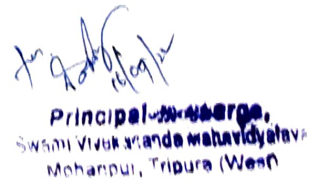 16/09/22
Principal-in-charge,
Swami Vivekananda Mahavidyalaya
Mohanpur, Tripura (West)